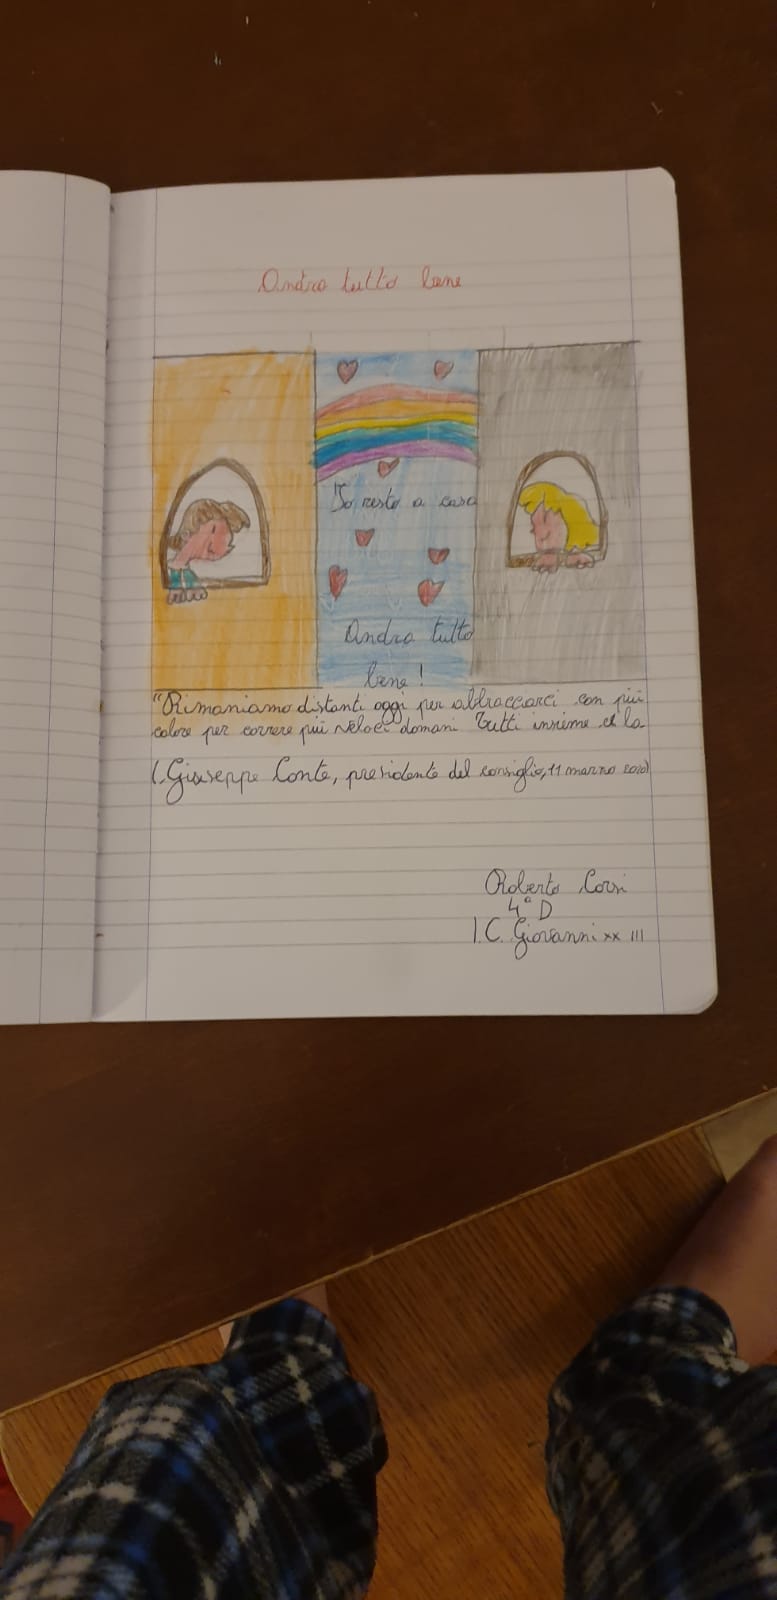 Andra tutto bene
Io resto a casa
Andra tutto
bene!
"Rimaniamo distanti oggi per abbracciarci con più
calore per correre più veloci domani Tutti insieme ce la
(Giuseppe Conte, presidente del consiglio, 11 marzo 2020)
Roberto Corsi
4ª D
I.C. Giovanni XX III